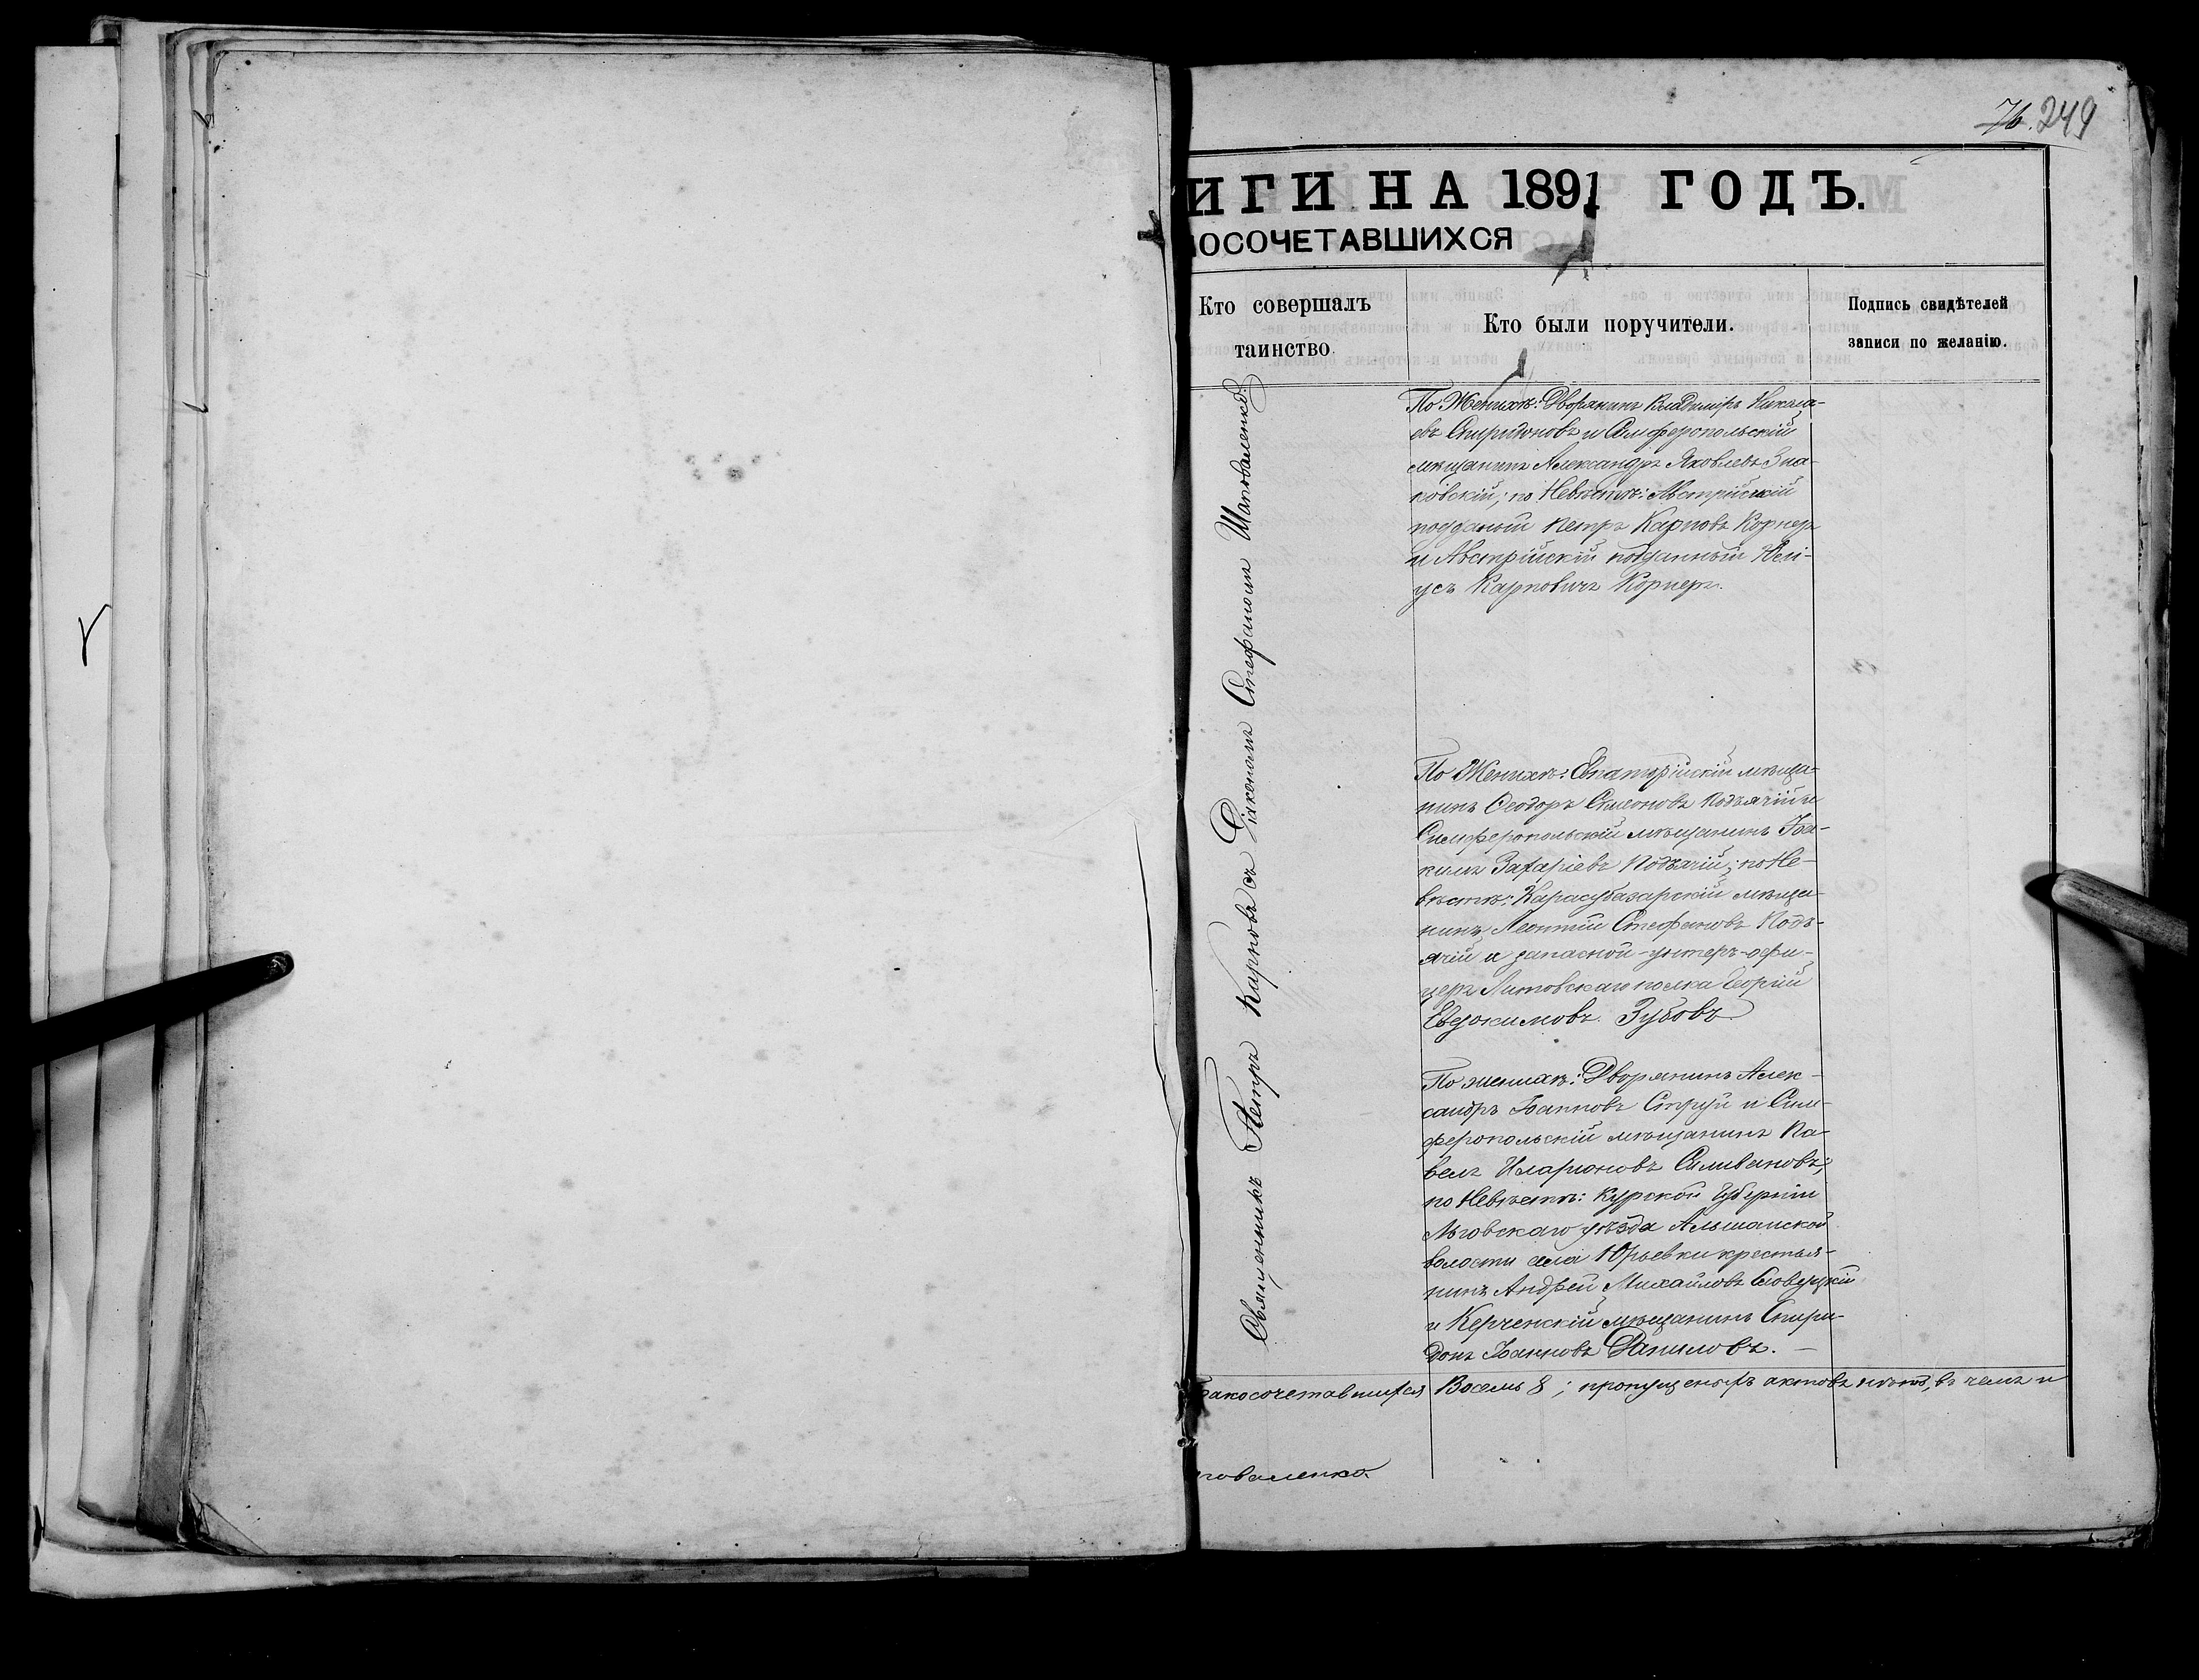 76. 249
ИГИ НА 1891 ГОДЪ.
ОСОЧЕТАВШИХСЯ
Кто совершалъ
таинство.
Кто были поручители.
Подпись свидѣтелей
записи по желанію.
Священникъ Петръ Карповъ съ Діакономъ Стефаномъ Шаповаленко.
По Женихѣ: Дворянинъ Владиміръ Никола-
евъ Спиридоновъ и Симферопольскій
мѣщанинъ Александръ Яковлевъ Зна-
ковскій; по Невѣстѣ: Австрійскій
подданый Петръ Карповъ Корнеръ
и Австрійскій подданный
усъ Карповичъ Корнеръ.
По Женихѣ: Евпаторійскій мѣща-
нинъ Ѳеодоръ Симеоновъ Подъячій и
Симферопольскій мѣщанинъ Іоа-
кимъ Захаріевъ Подъячій; по Не-
вѣстѣ: Карасубазарскій мѣща-
нинъ Леонтій Стефановъ Подъ-
ячій и запасной-унтеръ-офи-
церъ Литовскаго полка Георгій
Евдокимовъ Зубовъ.
По жениxѣ: Дворянинъ Алек-
сандръ Іоанновъ Струй и Сим-
феропольскій мѣщанинъ Па-
велъ Иларіоновъ Силивановъ;
по Невѣстѣ: Курской Губерніи
Льговскаго уѣзда Альшанской
волости села Юрьевки крестья-
нинъ Андрей Михайловъ
и Керченскій мѣщанинъ Спири-
донъ Іоанновъ Даниловъ. —
ракосочетавшихся Восемь 8; пропущеныхъ актовъ нѣтъ, въ чемъ и
поваленко.